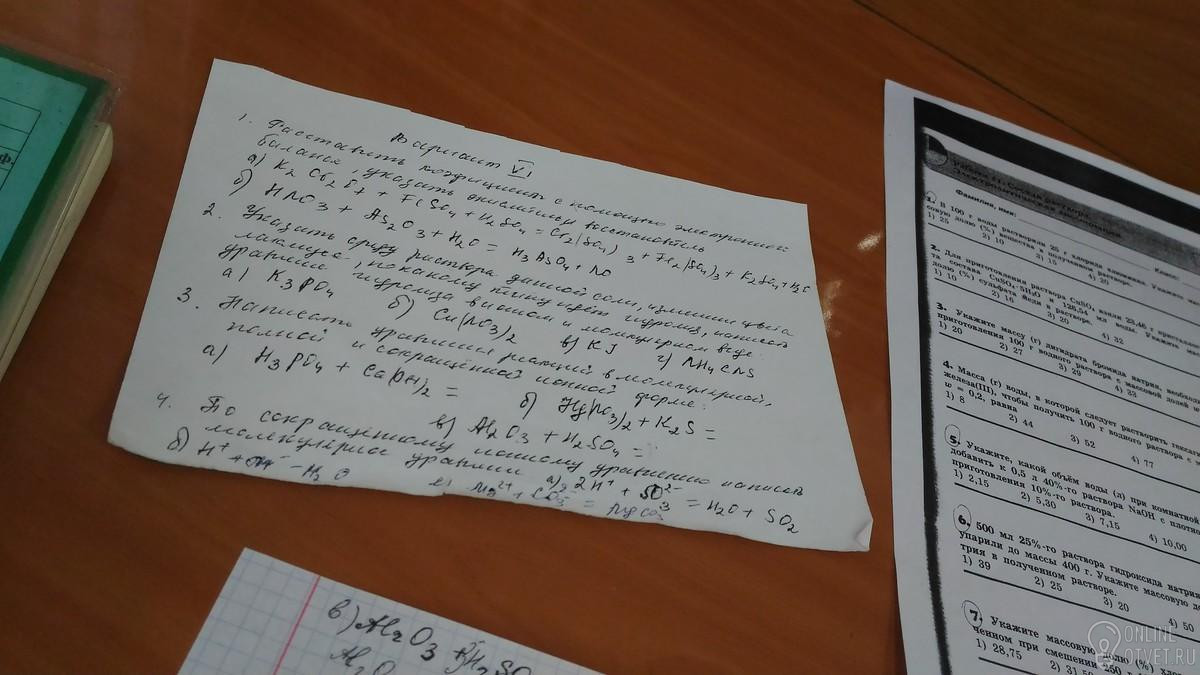 Вариант VI
1. Расставить коэфициенты с помощью электронного
баланса, указать окислитель и восстановитель
а) K2Cr2O7 + FeSO4 + H2SO4 = Cr2(SO4)3 + Fe2(SO4)3 + K2SO4 + H2O
б) HNO3 + As2O3 + H2O = H3AsO4 + NO
2. Указать среду раствора данной соли, цвета
по какому идёт гидролиз, написать
гидролиза в ионном и молекулярном виде:
а) K3PO4 б) Cu(NO3)2 в) KJ г) NH4CNS
3. Написать реакций в молекулярной,
полной и сокращённой ионной форме:
а) H3PO4 + Ca(OH)2 = б) Hg(NO3)2 + K2S =
в) Al2O3 + H2SO4 =
4. По сокращённому ионному уравнению написать
молекулярное
а) 2H+ + SO3 2- = H2O + SO2
б) H+ + OH- = H2O Mg2+ + CO3 2- = MgCO3
в) Al2O3 + H2SO
Работа 11. Состав раствора.
Электролитическая диссоциация
Фамилия, имя: Класс:
1. В 100 г воды растворили 25 г хлорида Укажите
совую долю (%) вещества в полученном растворе.
1) 25 2) 10 3) 15 4) 20
2. Для приготовления раствора CuSO4 взяли 23,46 г
та состава CuSO4·5H2O и 126,54 мл воды. Укажите
долю (%) сульфата меди в растворе.
1) 10 2) 16 3) 20 4) 32
3. Укажите массу (г) дигидрата бромида натрия, необхо
приготовления 100 г водного раствора с массовой долей
1) 20 2) 27 3) 29 4) 33
4. Масса (г) воды, в которой следует растворить гексаги
железа(III), чтобы получить 100 г водного раствора с
w = 0,2, равна
1) 8 2) 44 3) 52 4) 77
5. Укажите, какой объём воды (л) при комнатной
добавить к 0,5 л 40%-го раствора NaOH с плотно
приготовления 10%-го раствора.
1) 2,15 2) 5,30 3) 7,15 4) 10,00
6. 500 мл 25%-го раствора гидроксида натрия
упарили до массы 400 г. Укажите массовую до
трия в полученном растворе.
1) 39 2) 25 3) 20 4) 50
7. Укажите массовую долю (%)
ченном при смешении 250 г
1) 28,75 2) 31,50
ONLINE
OTVET.RU